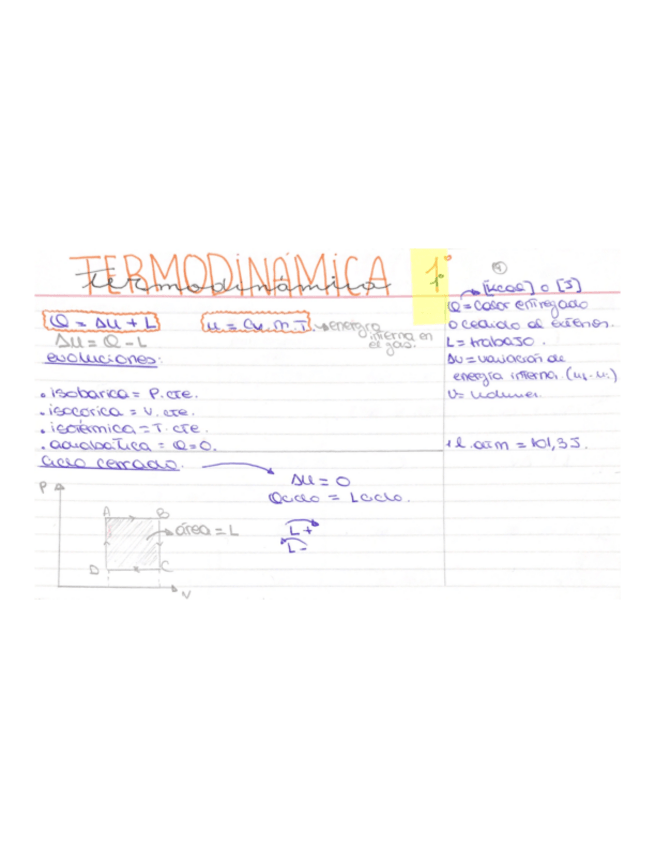 TERMODINÁMICA 1°
termodinámica 1°
Q = ΔU + L
U = Cv.m.T → energía interna en el gas.
ΔU = Q - L
evoluciones:
• isobarica = P. cte.
• isocorica = V. cte.
• isotérmica = T. cte.
• adiabatica = Q=0.
Ciclo cerrado.
ΔU = 0
Qciclo = Lciclo.
P
A B
área = L
D C
V
L +
L -
[kcal] o [J]
Q = Calor entregado
o cedido al exterior.
L = trabajo.
ΔU = variación de
energía interna.
V = volumen
1 l. atm = 101,3 J.